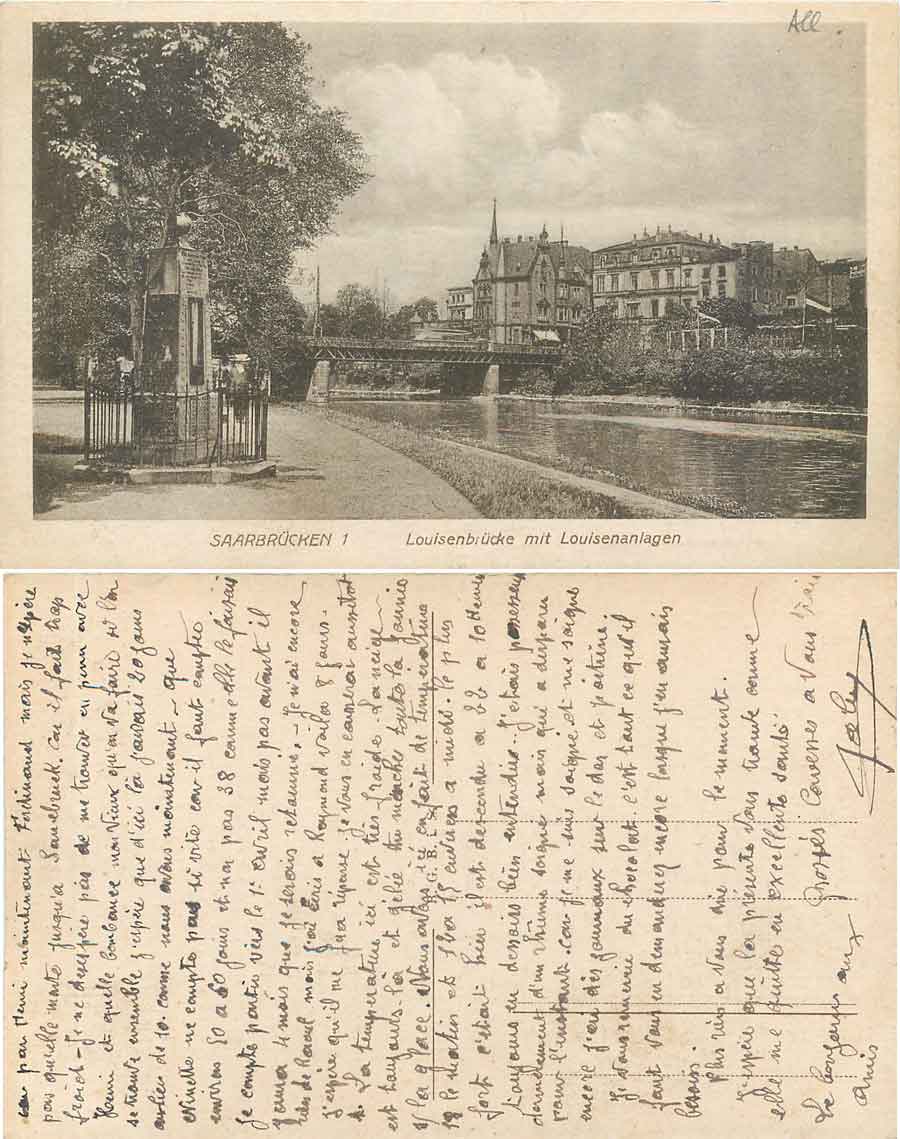 All
SAARBRÜCKEN 1 Louisenbrücke mit Louisenanlagen
Henri maintenant Ferdinand mais j'espère
pas qu'elle monte jusqu'à Sarrebruck. Car il fait trop
froid - Je ne désespère pas de me trouver en avec
Henri et quelle bonbance mon Vieux qu'on va faire si l'on
se trouve ensemble j'espère que d'ici là j'aurais 20 jours
au lieu de 10. comme nous avons maintenant - que
ne compte pas si vite car il faut compter
environ 50 à 60 jours et na pas 38 comme elle le faisait
Je compte partir vers le 1er avril mais pas avant il
4 mois que je serais retourné. - Je n'ai encore
rien de Raoul mais j'ai écris à Raymond voila 8 jours.
j'espère qu'il me fera réponse je vous en causerai aussitôt
La température ici est très froide. La neige
est toujours là et gelée tu marches toute la journée
s/ la glace. Nous avons ici en fait de température
le matin et 15 environ a midi. le plus
fort c'était hier il est descendu a 22 a 10 heures
Toujours en dessous bien entendu. J'étais
d'un rhume soigné mais qui a disparu
pour l'instant. car je me suis soigné et me soigne
encore j'ai des journaux sur le dos et poitrine.
Je vous remercie du chocolat. c'est tout ce qu'il
faut vous en demander encore lorsque j'en aurais
besoin.
Plus rien a vous dire pour le moment.
J'espère que la présente vous trouve comme
elle me quitte en excellente santé
Grosses Caresses a Vous
Le bonjour aux
Amis
G. B. L. S.